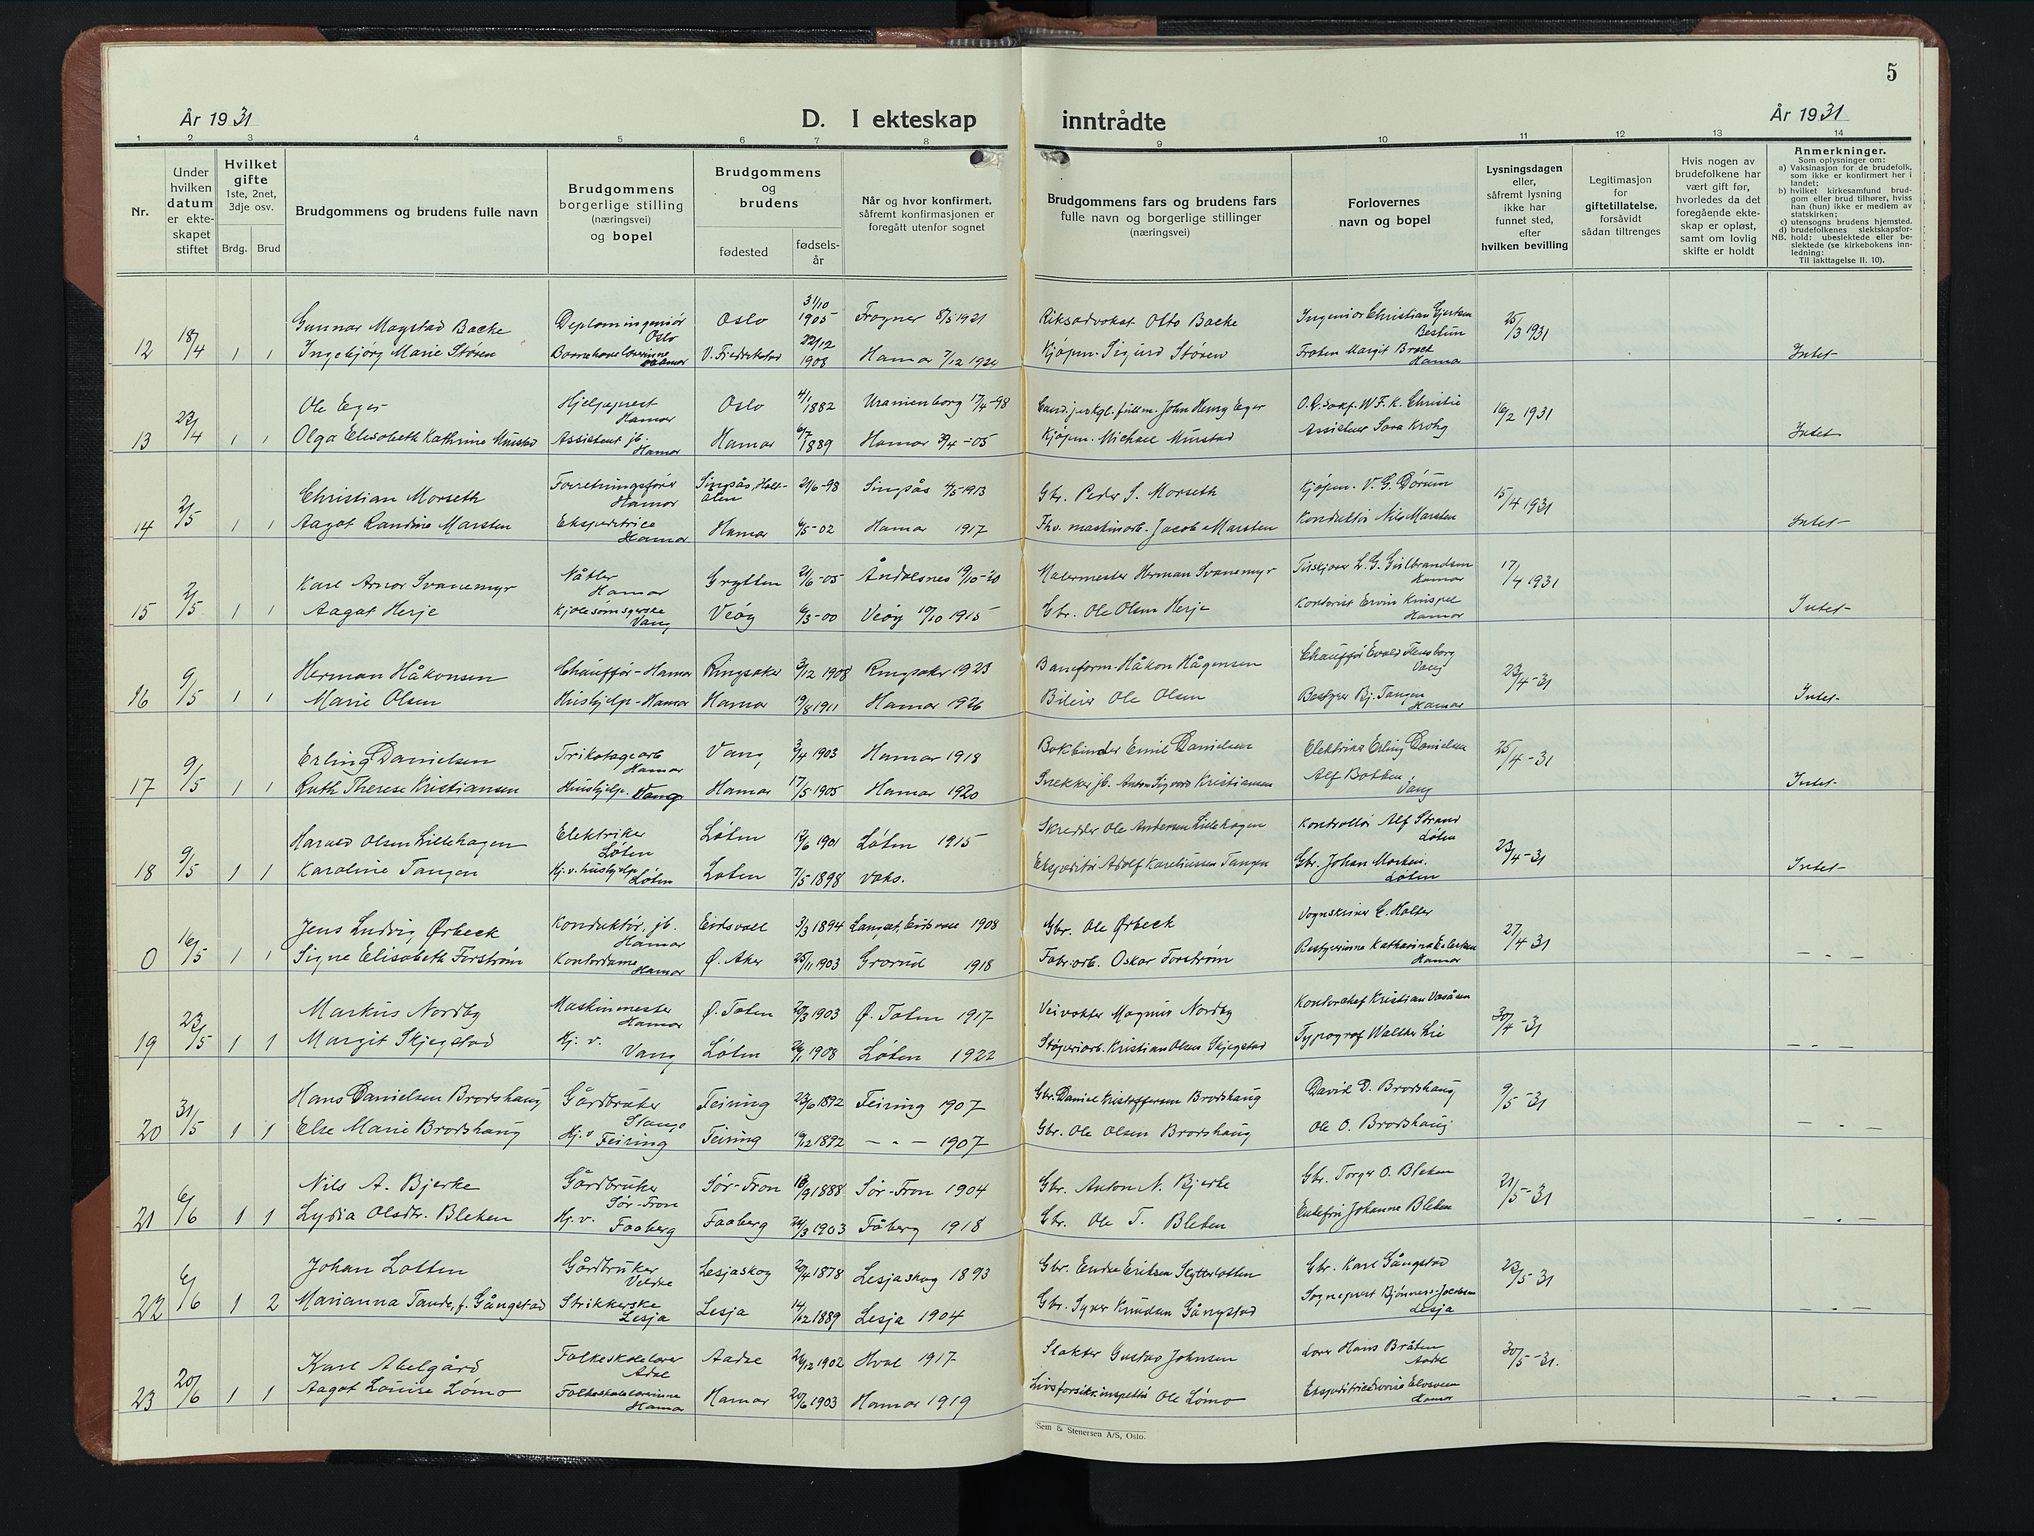 5
År 1931
D. I ekteskap inntrådte
År 1931
1 2 3 4 5 6 7 8 9 10 11 12 13 14
Nr.
Under hvilken datum er ekteskapet stiftet
Hvilket gifte
1ste, 2net, 3dje osv.
Brdg. Brud
Brudgommens og brudens fulle navn
Brudgommens borgerlige stilling (næringsvei) og bopel
Brudgommens og brudens
fødested
fødselsår
Når og hvor konfirmert,
såfremt konfirmasjonen er foregått utenfor sognet
Brudgommens fars og brudens fars
fulle navn og borgerlige stillinger
(næringsvei)
Forlovernes navn og bopel
Lysningsdagen eller, såfremt lysning ikke har funnet sted, efter hvilken bevilling
Legitimasjon for giftetillatelse, forsåvidt sådan tiltrenges
Hvis nogen av brudefolkene har vært gift før, hvorledes da det foregående ekteskap er opløst, samt om lovlig skifte er holdt
Anmerkninger.
Som oplysninger om:
a) Vaksinasjon for de brudefolk, som ikke er konfirmert her i landet;
b) hvilket kirkesamfund brudgom eller brud tilhører, hviss han (hun) ikke er medlem av statskirken;
c) utensogns brudens hjemsted.
d) brudefolkenes slektskapsforhold: ubeslektede eller beslektede (se kirkebokens innledning:
NB.
Til iakttagelse II. 10).
12 18/4 1 1 Gunnar Magstad Backe Diplomingeniør Oslo Oslo 31/10 1905 Frogner 8/5 1921 Riksadvokat Otto Backe Ingeniør Christian Gjertsen Bestun 25/3 1931
Ingebjørg Marie Støren Barnehavelærerinne Hamar V. Fredrikstad 22/12 1908 Hamar 7/12 1924 Kjøpm. Sigurd Støren Frøken Margit Hamar Intet
13 23/4 1 1 Ole Eger Hjelpeprest Hamar Oslo 4/1 1882 Uranienborg 17/4-98 John Henry Eger W. F. K. Christie 16/2 1931
Olga Elisabeth Kathrine Mustad Assistent jb. Hamar Hamar 6/7 1889 Hamar 30/4-05 Kjøpm. Michael Mustad Assistent Sara Krohg Intet
14 2/5 1 1 Christian Morseth Forretningsfører Hamar Singsås, Holtålen 21/6-98 Singsås 4/5-1913 Gbr. Peder S. Morseth Kjøpm. V. G. Dørum 15/4 1931
Aagot Randine Marsten Ekspeditrice Hamar Hamar 6/5-02 Hamar 1917 Fhv. maskinarb. Jacob Marsten Konduktør Nils Marsten Intet
15 2/5 1 1 Karl Arnor Svanemyr Nåtler Hamar Grytten 21/6-05 Åndalsnes 19/10-20 Malermester Herman Svanemyr L. G. Gulbrandsen Hamar 17/4 1931
Aagot Herje Kjolesømsyerske Vang Veøy 6/3-00 Veøy 10/10 1915 Gbr. Ole Olsen Herje Kontorist Ervin Knispel Hamar Intet
16 9/5 1 1 Herman Håkonsen Chauffør - Hamar Ringsaker 3/12 1908 Ringsaker 1923 Baneform. Håkon Hågensen Chauffør Evald Vang 23/4-31
Marie Olsen Hushjelp - Hamar Hamar 19/8 1911 Hamar 1926 Bileier Ole Olsen Bestyrer Bj. Tangen Hamar Intet
17 9/5 1 1 Erling Danielsen Trikotagearb Hamar Vang 3/4 1903 Hamar 1918 Bokbinder Emil Danielsen Elektriker Erling Danielsen 25/4-31
Ruth Therese Kristiansen Hushjelp. Vang Hamar 17/5 1905 Hamar 1920 Snekker jb. Anton Sigvard Kristiansen Alf Bakken Vang Intet
18 9/5 1 1 Harald Olsen Lillehagen Elektriker Løten Løten 12/6 1901 Løten 1915 Skredder Ole Andersen Lillehagen Kontrollør Alf Strand Løten 23/4-31
Karoline Tangen Hj. v. hushjelp Løten Løten 7/5 1898 voks. Ekspeditør Adolf Kareliussen Tangen Gbr. Johan Morken. Løten Intet
0 16/5 1 1 Jens Ludvig Ørbeck Konduktør, jb. Hamar Eidsvoll 3/3 1894 Langset, Eidsvoll 1908 Gbr. Ole Ørbeck Vognskriver E. Holter 27/4 31
Signe Elisabeth Forstrøm Kontordame Hamar Ø. Aker 25/11 1903 Grorud 1918 Fabr.arb. Oskar Forstrøm Bestyrerinne Katharina Hamar - " -
19 23/5 1 1 Markus Nordby Maskinmester Hamar Ø. Toten 20/3 1903 Ø. Toten 1917 Veivokter Magnus Nordby Kontorchef Kristian Vasåsen 30/4-31
Margit Skjegstad Hj. v. Vang Løten 26/1 1908 Løten 1922 Støperiarb. Kristian Olsen Skjegstad Typograf Walther Lie - " -
20 31/5 1 1 Hans Danielsen Brodshaug Gårdbruker Stange Feiring 23/6 1892 Feiring 1907 Gbr. Daniel Kristoffersen Brodshaug David D. Brodshaug 9/5-31
Else Marie Brodshaug Hj. v Feiring Feiring 19/12 1892 - " - 1907 Gbr. Ole Olsen Brodshaug Ole O. Brodshaug - " -
21 6/6 1 1 Nils A. Bjerke Gårdbruker Sør-Fron Sør-Fron 18/9 1888 Sør-Fron 1904 Gbr. Anton N. Bjerke Gbr. Torger O. Bleken 21/5-31
Lydia Olsdtr. Bleken Hj. v. Faaberg Faaberg 26/3 1903 Fåberg 1918 Gbr. Ole T. Bleken Enkefru Johanne Bleken - " -
22 6/6 1 2 Johan Lotten Gårdbruker Veldre Lesjaskog 20/4 1878 Lesjaskog 1893 Gbr. Endre Eriksen Slytterlotten Gbr. Karl Gångstad 23/5-31
Marianna Tande, f. Gångstad Strikkerske Lesja Lesja 14/12 1889 Lesja 1904 Gbr. Syver Knudsen Gångstad Sogneprest Bjønnes-Jacobsen Lesja - " -
23 20/6 1 1 Karl Abelgård Folkeskolelærer Ådal Aadal 26/12 1902 Hval 1917 Slakter Gustav Johnsen Lærer Hans Bråten Aadal 30/5-31.
Aagot Louise Lømo Folkeskolelærerinne Hamar Hamar 20/6 1903 Hamar 1919 Livsforsikr.inspektør Ole Lømo Hamar - " -
Sem & Stenersen A/S, Oslo.